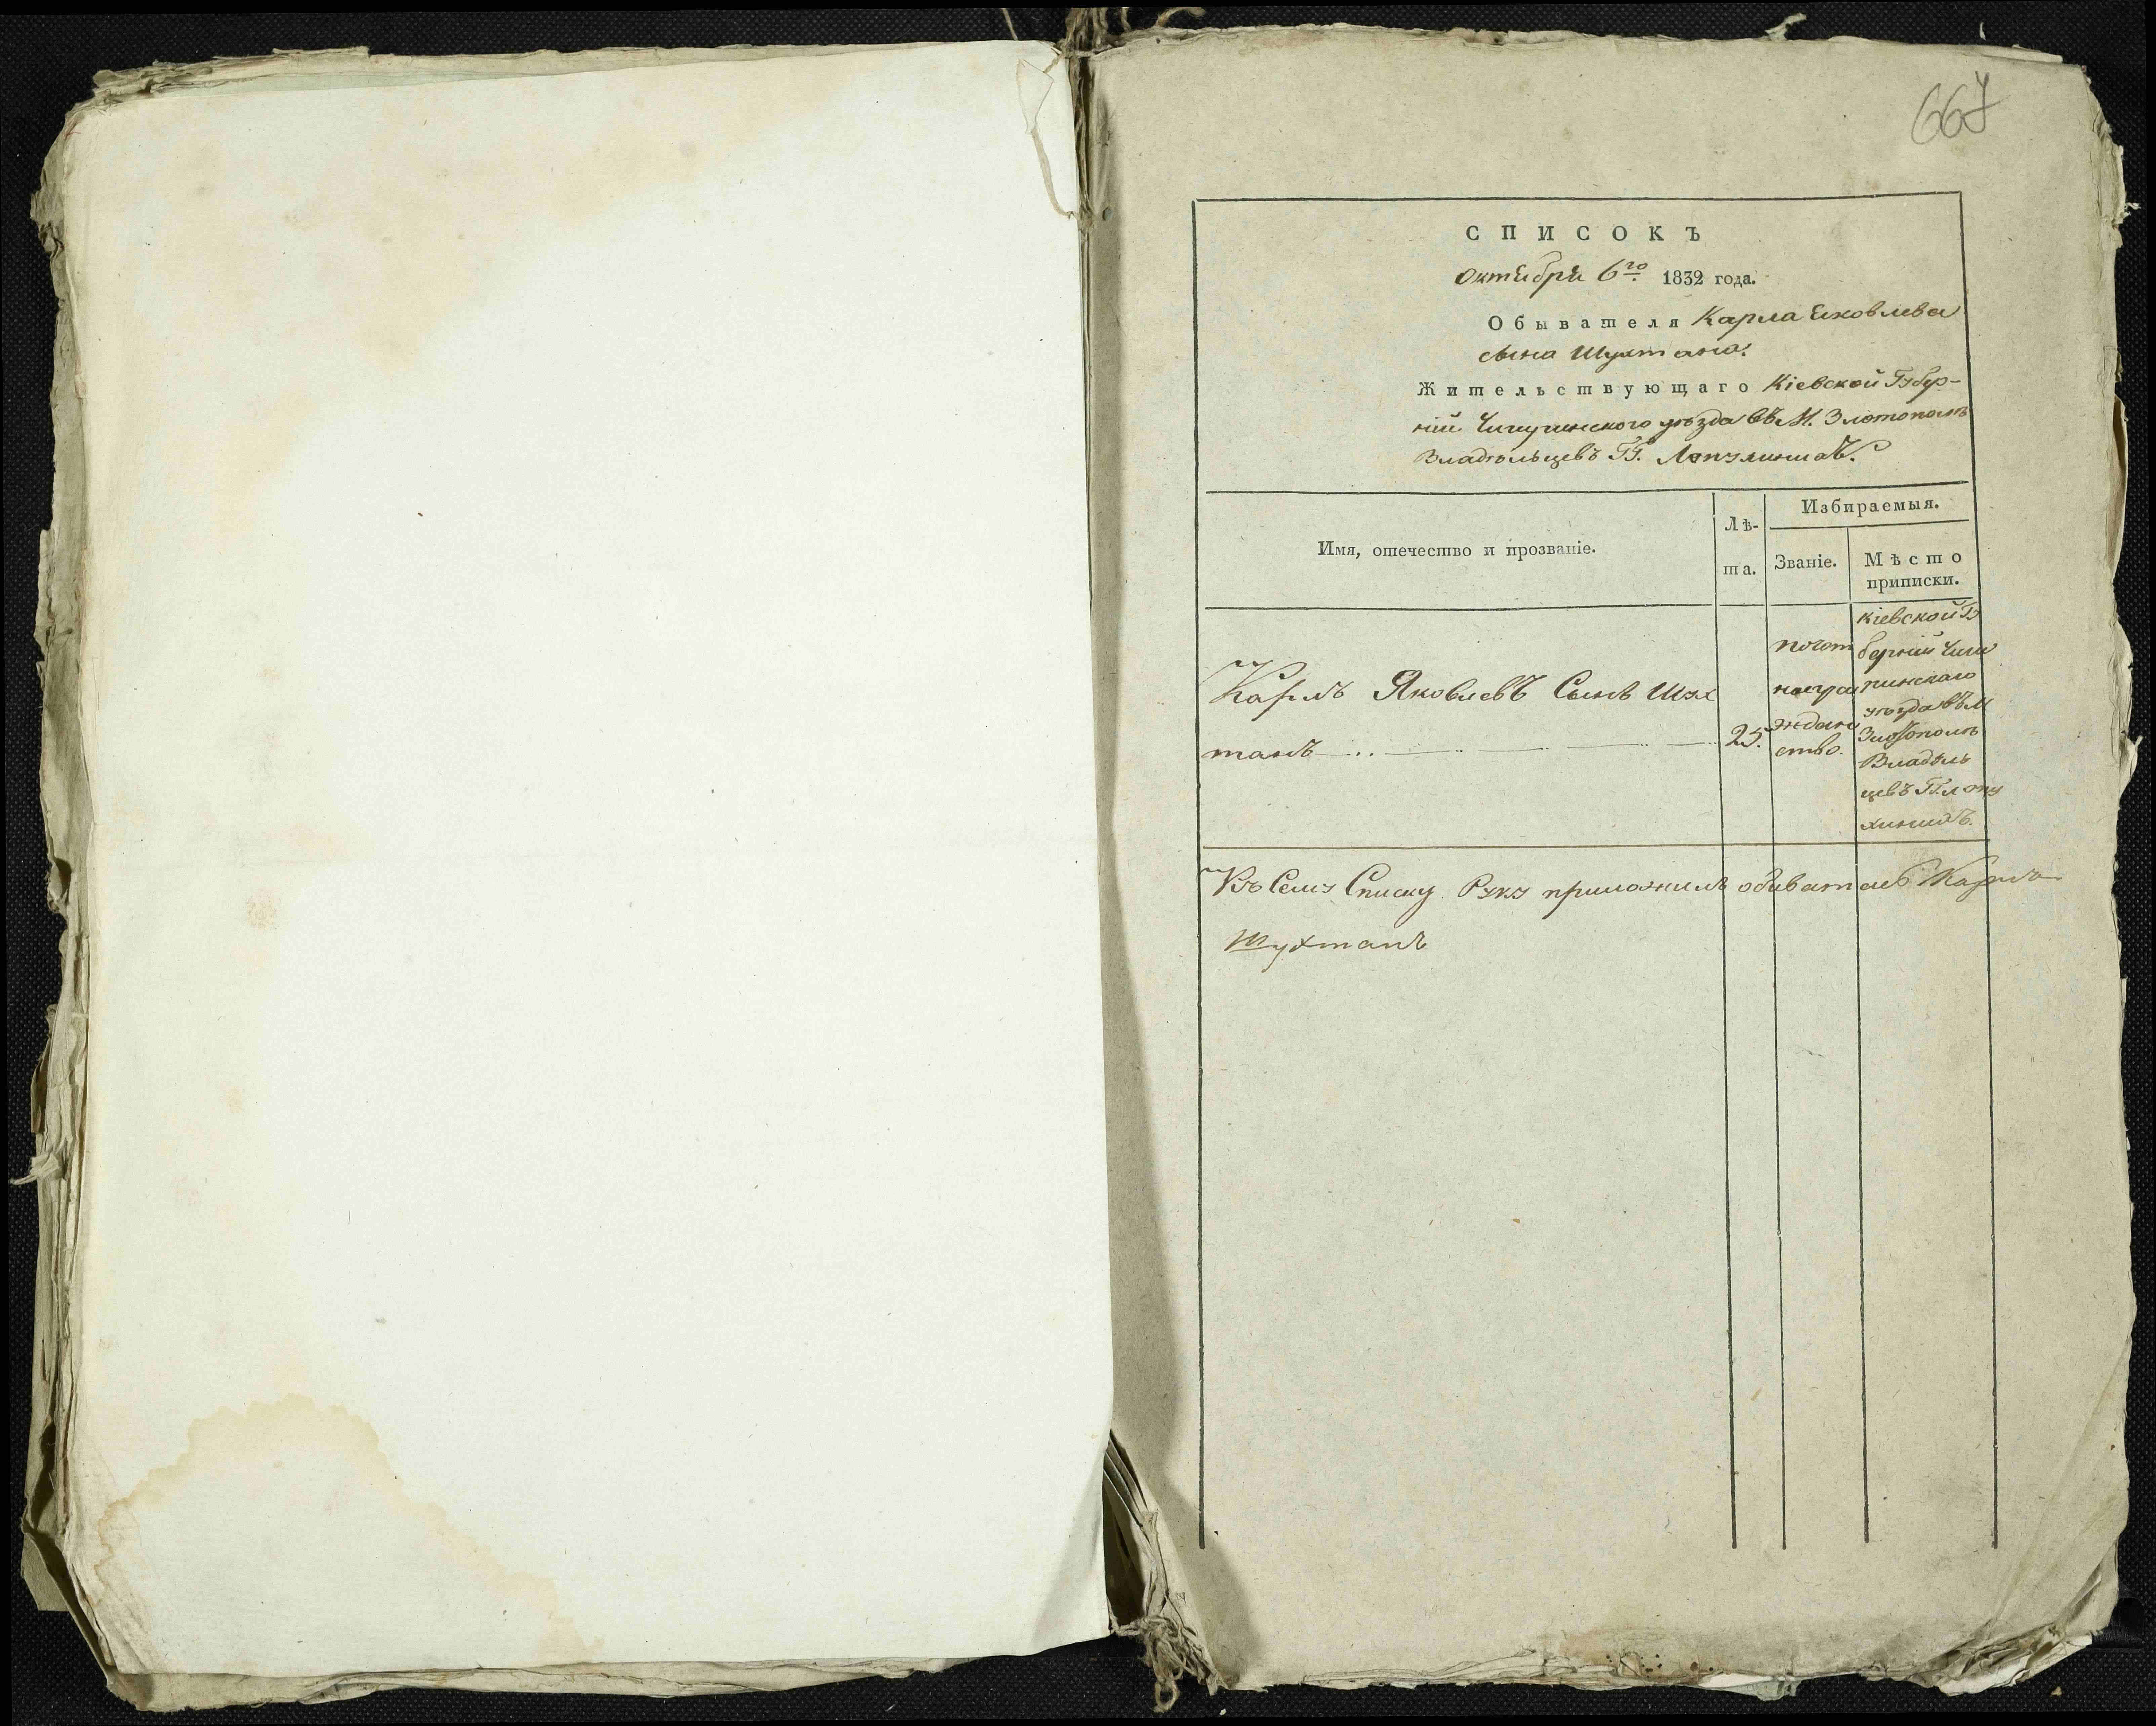 667
СПИСОКЪ
Октября 6го 1832 года.
Обывателя Карла Яковлева
сына Шухтана.
Жительствующаго Кіевской Губер-
ніи Чигиринского уѣзда въ М. Златополѣ
Владѣльцевъ ГГ. Лопухиныхъ.
Имя, отечество и прозваніе.
Лѣ-
та.
Избираемыя.
Званіе.
Мѣсто
приписки.
Карлъ Яковлевъ Сынъ Шух
танъ
25.
почот
ное гра
ждан
ство.
Кіевской Гу
берніи Чиги
ринскаго
уѣзда въ М
Златополѣ
Владѣль
цевъ ГГ. Лопу
хиныхъ.
Къ Сему Списку Руку приложилъ обыватель Карлъ
Шухтанъ